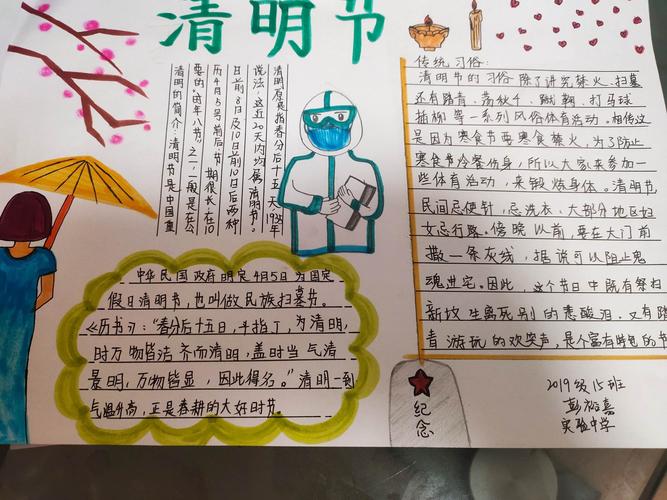 清明节
清明的简介:清明节是中国重
要的"时年八节"之一,一般是在公
历4月5号前后,节期很长,在10
日前8日及10日前10日后两种
说法,这近20天内均属清明节。
清明原是指春分后十五天,1935年
中华民国政府明定4月5日为国定
假日清明节,也叫做民族扫墓节。
《历书》:"春分后十五日,斗指丁,为清明,
时万物皆洁齐而清明,盖时当气清
景明,万物皆显,因此得名。"清明一到
气温升高,正是春耕的大好时节。
传统习俗:
清明节的习俗除了讲究禁火、扫墓
还有踏青、荡秋千、蹴鞠、打马球
插柳等一系列风俗体育活动。相传这
是因为寒食节要寒食禁火,为了防止
寒食节冷餐伤身,所以大家来参加一
些体育活动,来锻炼身体。清明节,
民间忌使针,忌洗衣,大部分地区妇
女忌行路。傍晚以前,要在大门前
撒一条灰线,据说可以阻止鬼
魂进宅。因此,这个节日中既有祭扫
新坟生离死别的悲酸泪,又有踏
青游玩的欢笑声,是个富有特色的节
纪念
2019级15班
实验中学